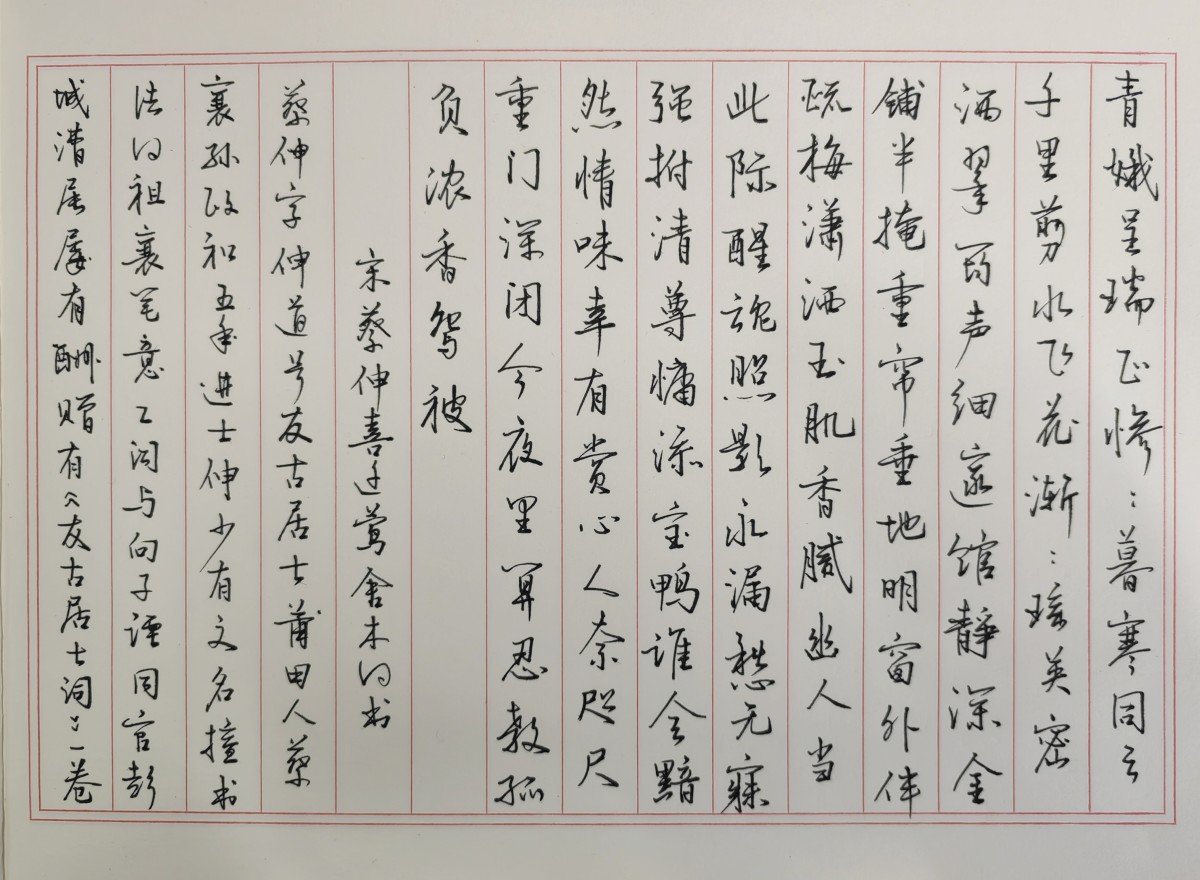 青娥呈瑞正惨：暮寒同云
千里剪水飞花渐：瑶英密
洒翠筠声细邃馆静深金
铺半掩重帘垂地明窗外伴
疏梅潇洒玉肌香腻幽人当
此际醒魂照影永漏愁无寐
强拊清尊慵添宝鸭谁会黯
然情味幸有赏心人奈咫尺
重门深闭今夜里算忍教孤
负浓香鸳被
宋蔡伸喜迁莺舍木的书
蔡伸字伸道号友古居士莆田人蔡
襄孙政和五年进士伸少有文名擅书
法的祖襄笔意工词与向子諲同官彭
城漕属屡有酬赠有《友古居士词》一卷